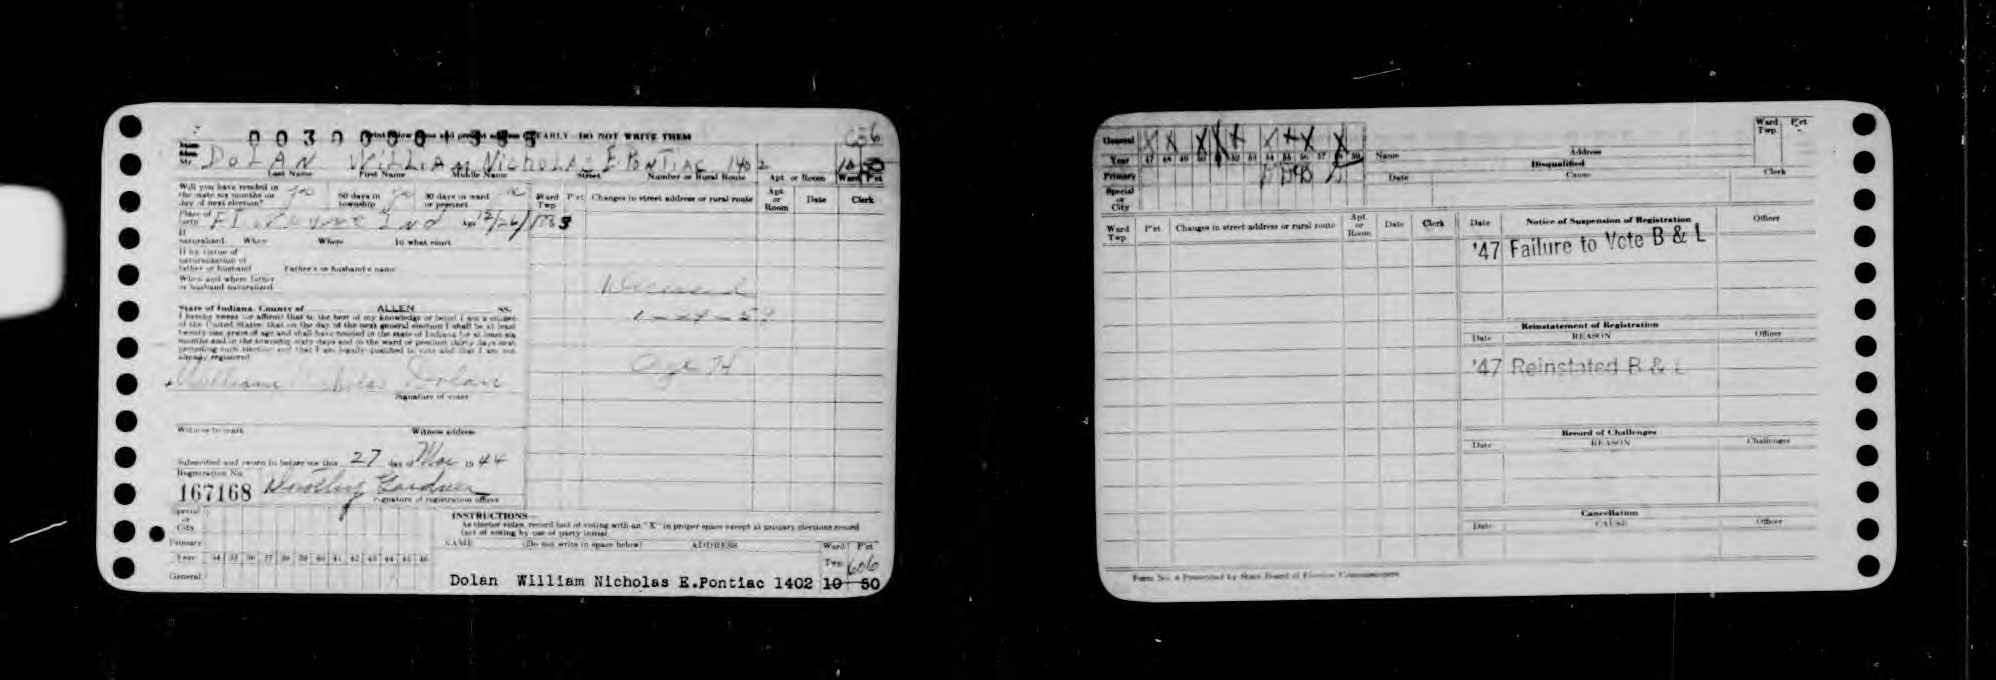 Print below name and present address CLEARLY—DO NOT WRITE THEM
Mr. DOLAN WILLIAM NICHOLAS E PONTIAC 1402
Last Name First Name Middle Name Street Number or Rural Route Apt. or Room Ward P'ct
Will you have resided in the state six months on day of next election? yes 60 days in township 30 days in ward or precinct
Ward Twp P'ct Changes in street address or rural route Apt. or Room Date Clerk
Place of birth Ft Wayne Ind Age 12/26/1883
If naturalized When Where In what court
If by virtue of naturalization of father or husband Father's or husband's name
When and where father or husband naturalized
Deceased
State of Indiana, County of ALLEN SS:
I hereby swear (or affirm) that to the best of my knowledge or belief I am a citizen
of the United States; that on the day of the next general election I shall be at least
twenty-one years of age and shall have resided in the state of Indiana for at least six
months and in the township sixty days and in the ward or precinct thirty days next
preceding such election and that I am legally qualified to vote and that I am not
already registered
Age 74
William Nicholas Dolan
Signature of voter
Witness to mark Witness address
Subscribed and sworn to before me this 27 day of Mar 1944
Registration No.
167168 Dorothy Gardner
Signature of registration officer
Special or City
Primary
Year 34 35 36 37 38 39 40 41 42 43 44 45 46
General
INSTRUCTIONS—
As elector votes, record fact of voting with an "X" in proper space except at primary elections record
fact of voting by use of party initial.
NAME (Do not write in space below) ADDRESS Ward Twp P'ct
606
Dolan William Nicholas E.Pontiac 1402 10 50
General X X X X X X X X X
Year 47 48 49 50 51 52 53 54 55 56 57 58 59
Primary
Special or City
Name Address Ward Twp P'ct
Disqualified
Date Cause Clerk
Ward Twp P'ct Changes in street address or rural route Apt. or Room Date Clerk
Date Notice of Suspension of Registration Officer
'47 Failure to Vote B & L
Reinstatement of Registration
Date REASON Officer
'47 Reinstated B & L
Record of Challenges
Date REASON Challenger
Cancellation
Date CAUSE Officer
Form No. 4 Prescribed by State Board of Election Commissioners